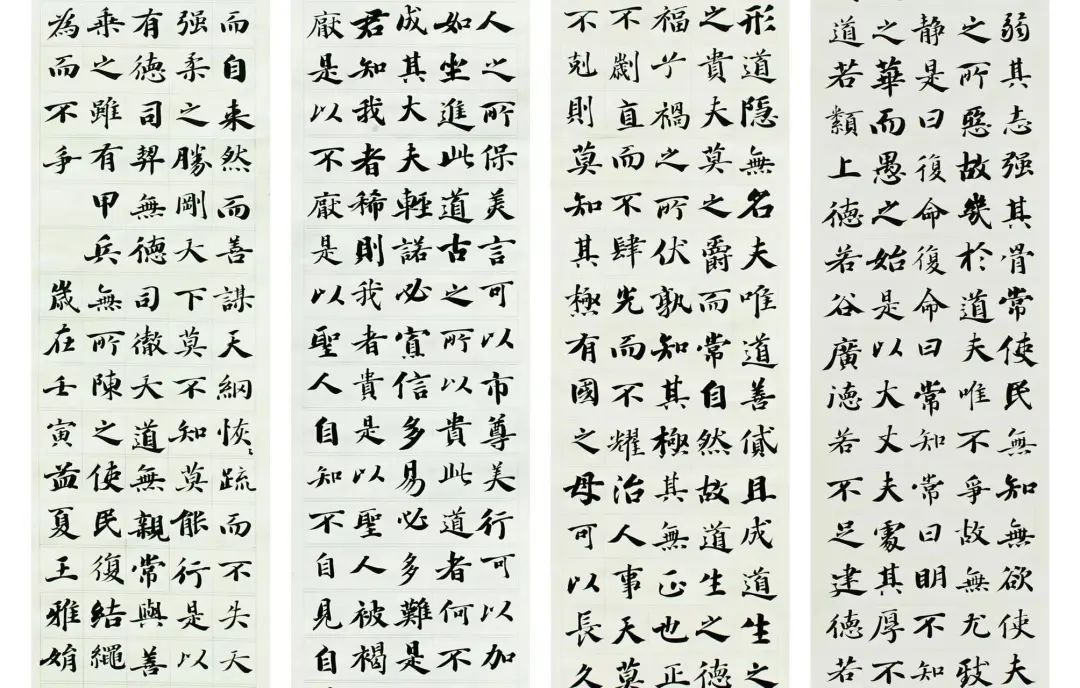 弱其志强其骨常使民無知無欲使夫
之所惡故幾於道夫唯不爭故無尤致
静是曰復命復命曰常知常曰明不知
之華而愚之始是以大丈夫處其厚不
道若纇上德若谷廣德若不足建德若
形道隱無名夫唯道善貸且成道生之
之貴夫莫之爵而常自然故道生之德
福兮禍之所伏孰知其極其無正也正
不劌直而不肆光而不耀治人事天莫
不剋則莫知其極有國之母可以長久
人之所保美言可以市尊美行可以加
如坐進此道古之所以貴此道者何不
成其大夫輕諾必寡信多易必多難是
君知我者稀則我者貴是以聖人被褐
厭是以不厭是以聖人自知不自見自
而自来然而善謀天網恢〻疏而不失天
强柔之勝剛天下莫不知莫能行是以
有德司契無德司徹天道無親常與善
乘之雖有甲兵無所陳之使民復結繩
為而不爭 歲在壬寅孟夏王雅娟